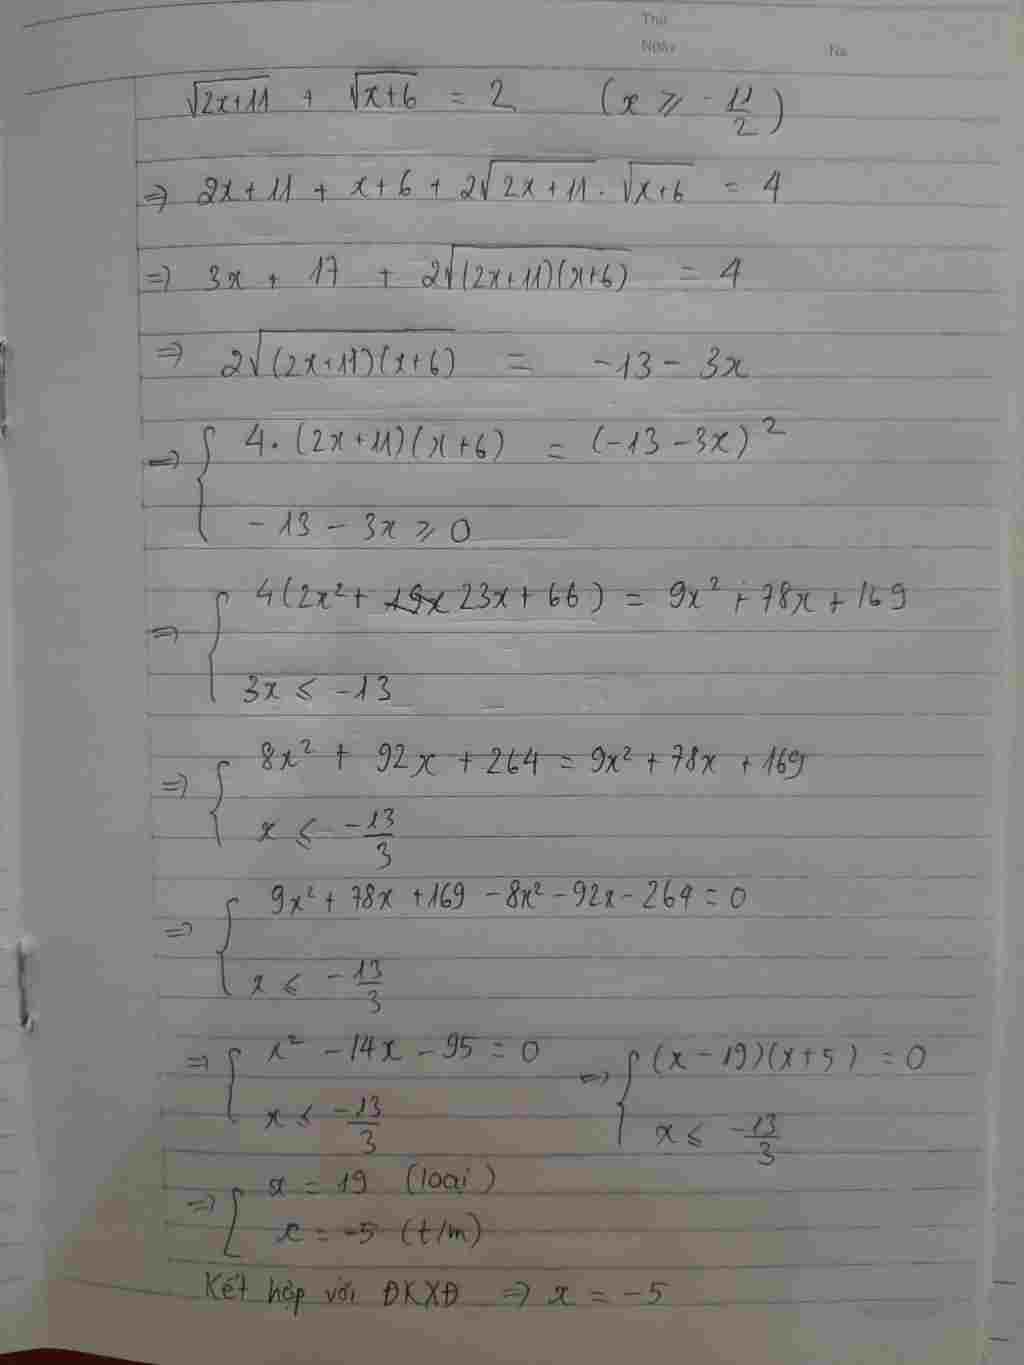 Thứ
Ngày No
√(2x+11) + √(x+6) = 2 (x ⩾ -11/2)
=> 2x+11 + x+6 + 2√(2x+11) . √(x+6) = 4
=> 3x + 17 + 2√((2x+11)(x+6)) = 4
=> 2√((2x+11)(x+6)) = -13 - 3x
=> { 4.(2x+11)(x+6) = (-13-3x)²
-13 - 3x ⩾ 0
=> { 4(2x² + 19x 23x + 66) = 9x² + 78x + 169
3x ⩽ -13
=> { 8x² + 92x + 264 = 9x² + 78x + 169
x ⩽ -13/3
=> { 9x² + 78x + 169 - 8x² - 92x - 264 = 0
x ⩽ -13/3
=> { x² - 14x - 95 = 0 <=> { (x-19)(x+5) = 0
x ⩽ -13/3 x ⩽ -13/3
=> [ x = 19 (loại)
x = -5 (t/m)
Kết hợp với ĐKXĐ => x = -5